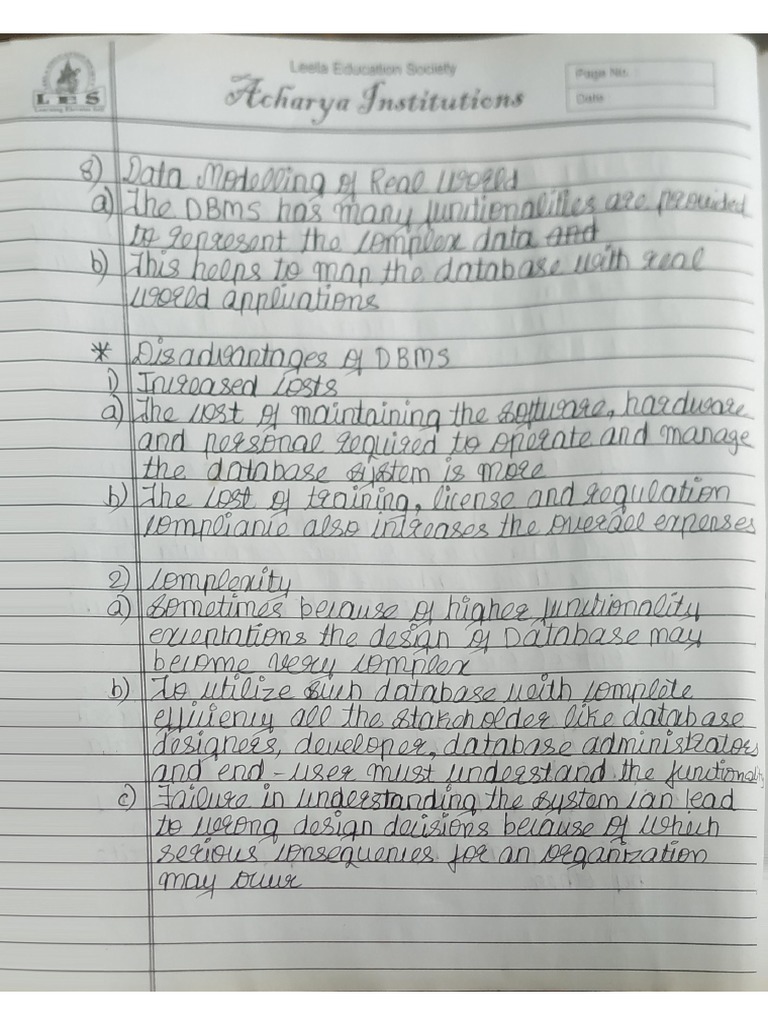 Leela Education Society
Acharya Institutions
LES
Page No.
Date
8) Data Modelling of Real World
a) The DBMS has many functionalities are provided
to represent the complex data and
b) This helps to map the database with real
world applications
* Disadvantages of DBMS
1) Increased Costs
a) The cost of maintaining the software, hardware
and personal required to operate and manage
the database system is more
b) The cost of training, license and regulation
compliance also increases the overall expenses
2) Complexity
a) Sometimes because of higher functionality
expentations the design of Database may
become very complex
b) To utilize such database with complete
efficiency all the stakeholder like database
designers, developer, database administrators
and end-user must understand the functionality
c) Failure in understanding the system can lead
to wrong design decisions because of which
serious consequencies for an organization
may occur